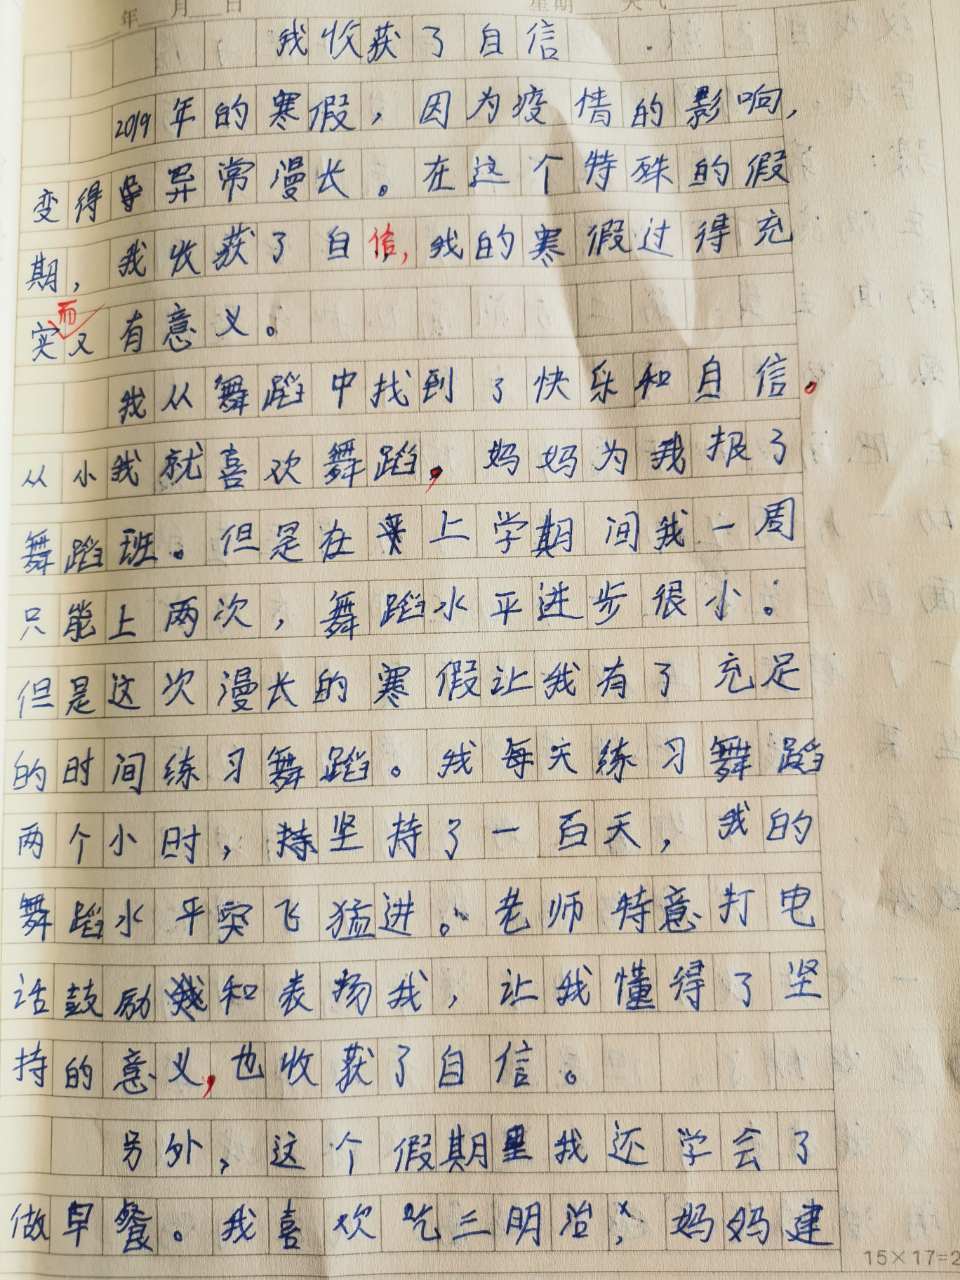 年 月 日 星期 天气
我收获了自信
2019年的寒假，因为疫情的影响，
变得异常漫长。在这个特殊的假
期，我收获了自信，我的寒假过得充
实而又有意义。
我从舞蹈中找到了快乐和自信。
从小我就喜欢舞蹈，妈妈为我报了
舞蹈班。但是在上学期间我一周
只能上两次，舞蹈水平进步很小。
但是这次漫长的寒假让我有了充足
的时间练习舞蹈。我每天练习舞蹈
两个小时，坚持了一百天，我的
舞蹈水平突飞猛进。老师特意打电
话鼓励和表扬我，让我懂得了坚
持的意义，也收获了自信。
另外，这个假期里我还学会了
做早餐。我喜欢吃三明治，妈妈建
15×17=2